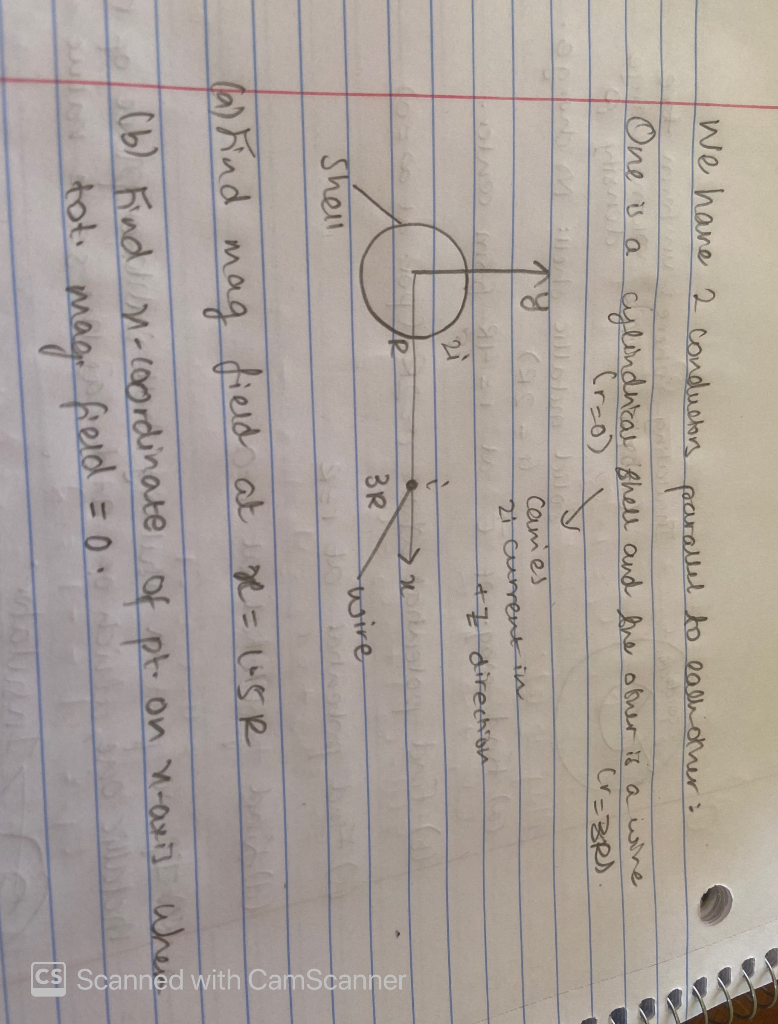 We have 2 conductors parallel to each other:
One is a cylindrical shell and the other is a wire
(r=0) (r=3R).
carries
2i current in
+z direction
y
2i
i
R
3R
x
Shell
wire
(a) Find mag field at x = 1.5R
(b) Find x-coordinate of pt. on x-axis when
tot. mag. field = 0.
CS Scanned with CamScanner